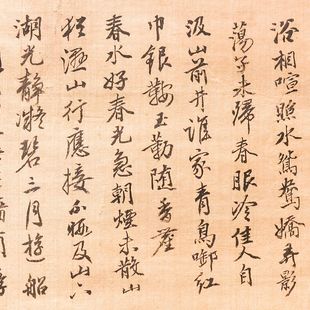 浴相喧照水鴛鴦嬌弄影
蕩子未歸春服冷佳人自
汲山前井誰家青鳥啣紅
巾銀鞍玉勒随香塵
春水好春光急朝煙未散山
猶濕山行應接不暇及山六
湖光靜凝碧二月遊船